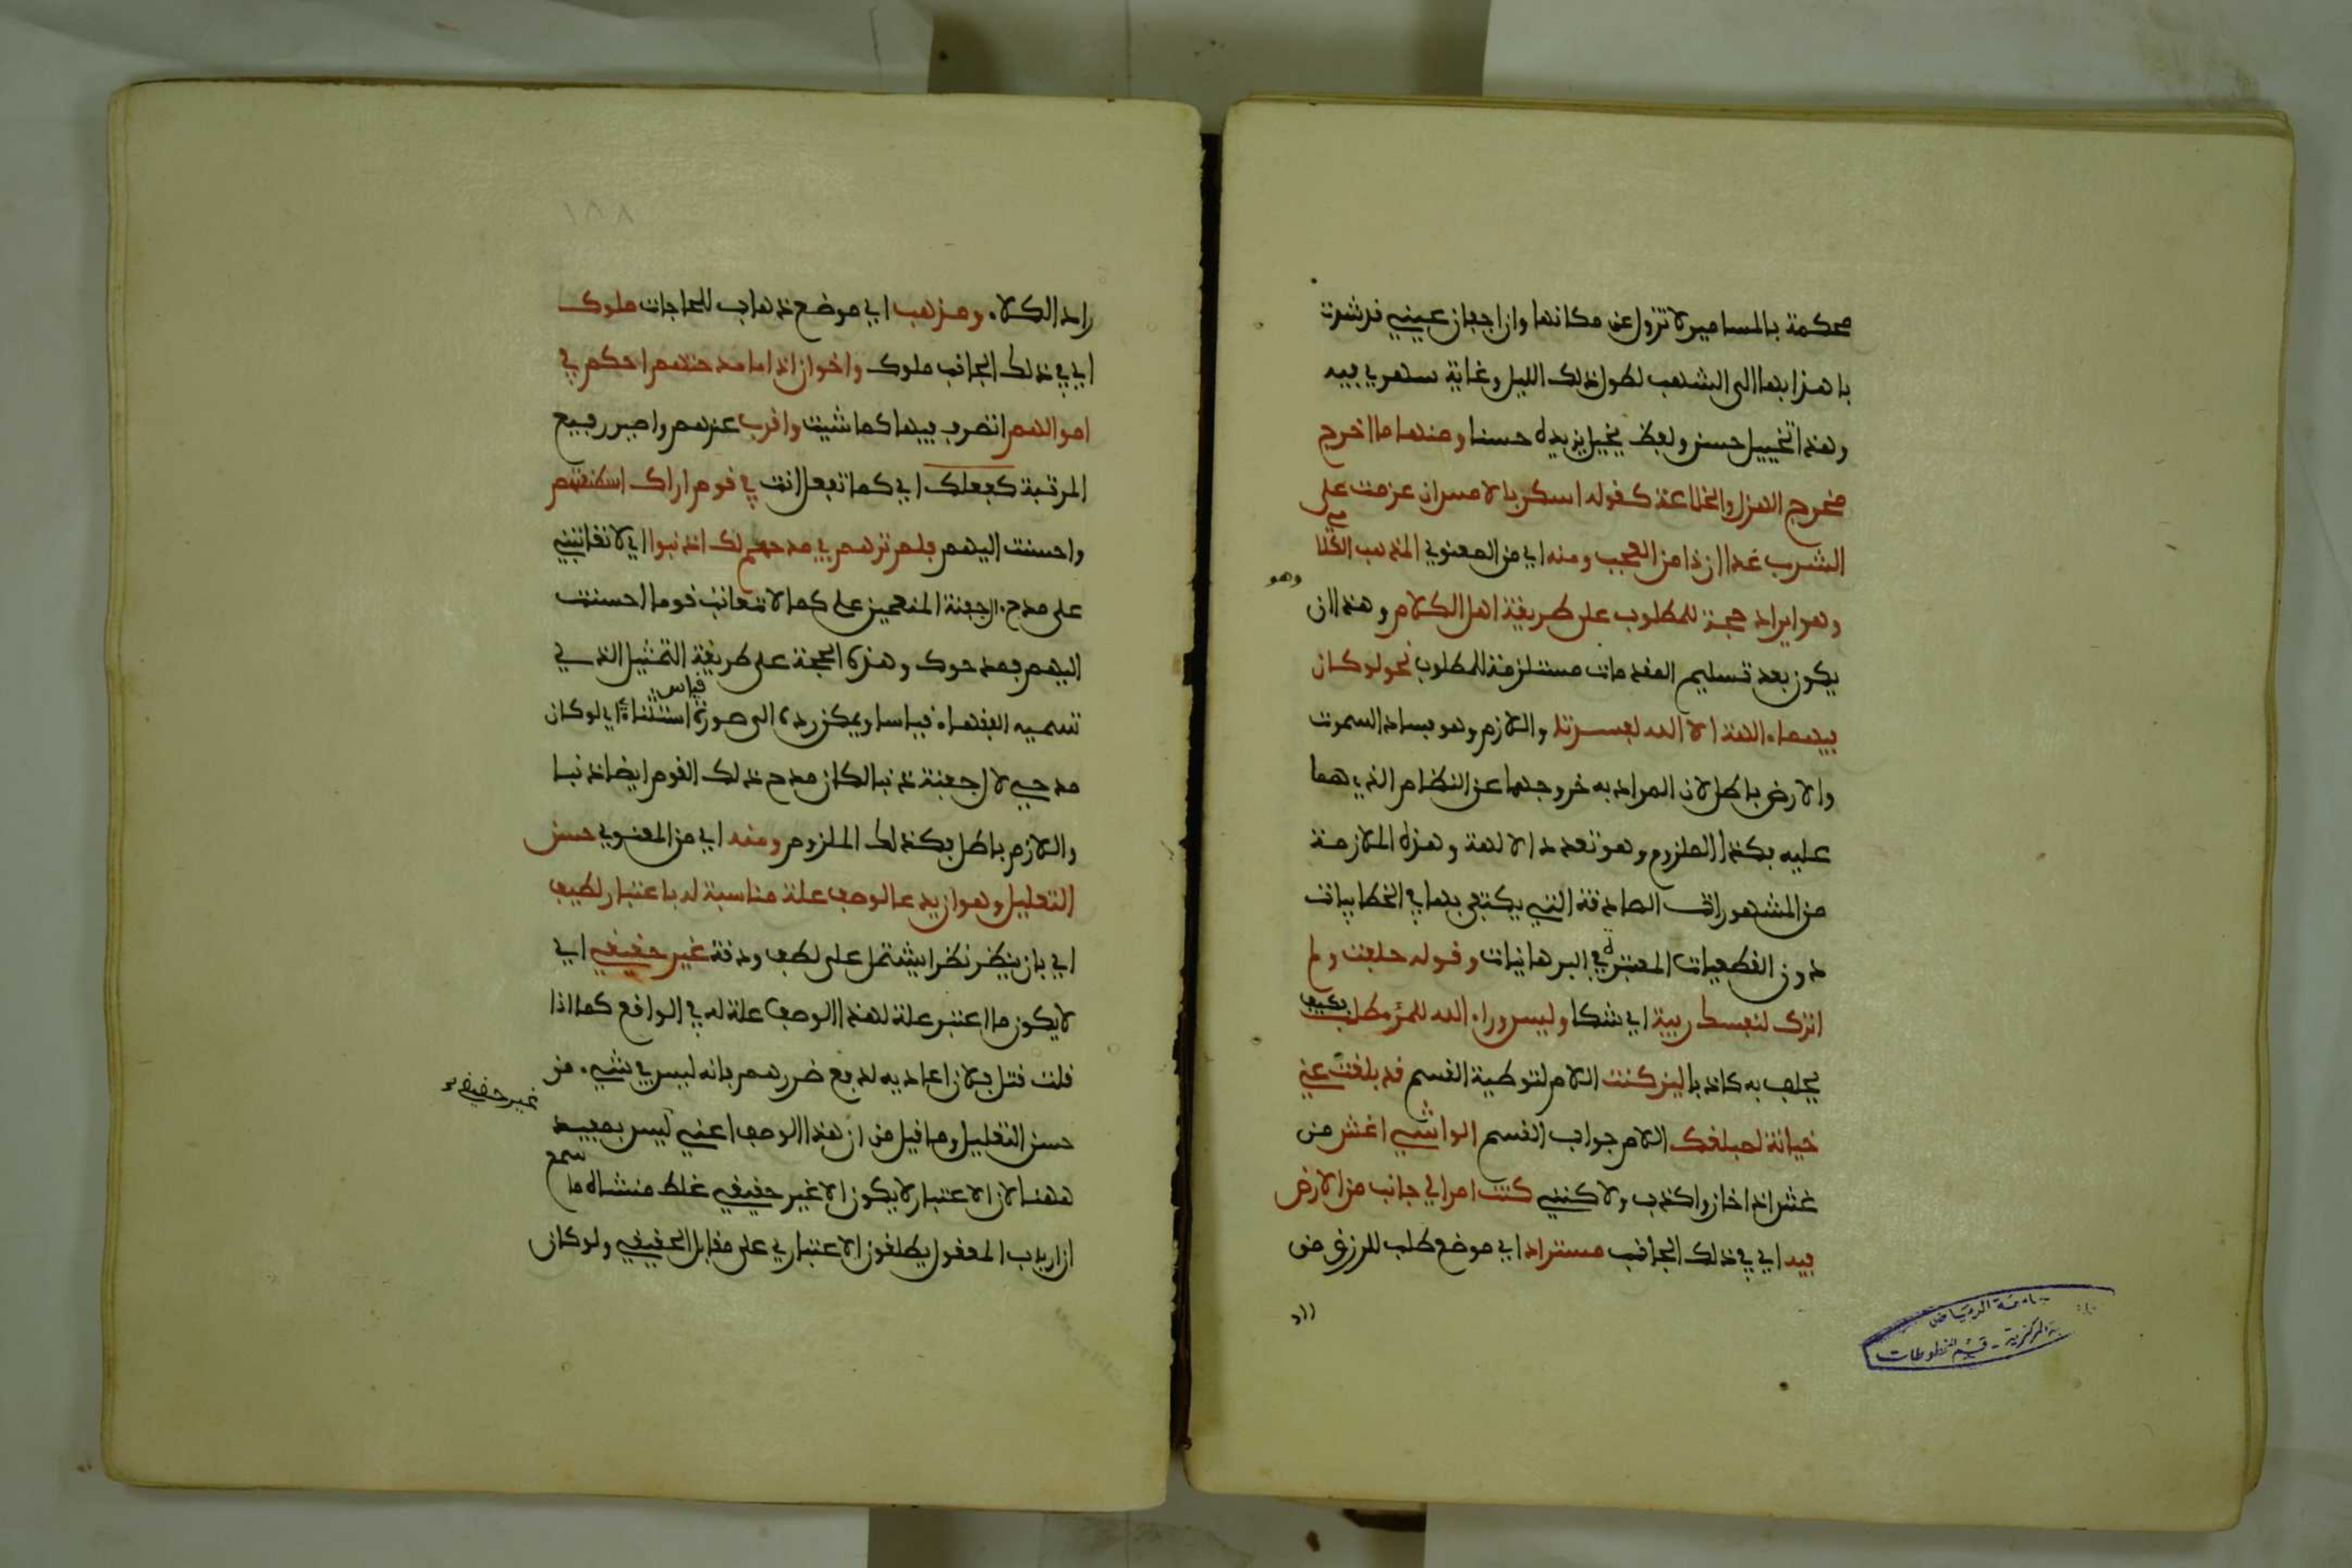 محكمة بالمسامير لا تزول عن مكانها وان اجفان عيني قد شدت
باهدابها الى الشهب لطول ذلك الليل وغاية سهري فيه
وهذا تخييل حسن ولفظ يخيل يزيده حسنا ومنها ما اخرج
مخرج الهزل والخلاعة كقوله اسكر بالامس ان عزمت على
الشرب غدا ان ذا من العجب ومنه اي من المعنوي المذهب الكلامي
وهو ايراد حجة للمطلوب على طريقة اهل الكلام وهذا ان
وهو
يكون بعد تسليم المقدمات مستلزمة للمطلوب نحو لو كان
فيهما ءالهة الا الله لفسدتا واللازم وهو فساد السموت
والارض باطل لان المراد به خروجهما عن النظام الذي هما
عليه فكذا الملزوم وهو تعدد الالهة وهذه الملازمة
من المشهورات الصادقة التي يكتفى بها في الخطابيات
دون القطعيات المعتبرة في البرهانيات وقوله حلفت ولم
اترك لنفسك ريبة اي شكا وليس وراء الله للمرء مطلب فكيف
يحلف به كاذبا لين كنت اللام لتوطية القسم قد بلغت عني
خيانة لمبلغك اللام جواب القسم الواشي اغش من
غش اذا خان واكذب ولاكنني كنت امرا لي جانب من الارض
فيه اي في ذلك الجانب مستراد اي موضع طلب للرزق من
راد الكلاء ومذهب اي موضع ذهاب للحاجات ملوك
اي في ذلك الجانب ملوك واخوان اذا ما مدحتهم احكم في
اموالهم اتصرف فيها كما شيت واقرب عندهم واصير رفيع
المرتبة كفعلك اي كما تفعل انت في قوم اراك اصطنعتهم
واحسنت اليهم فلم ترهم في مدحهم لك اذنبوا اي لا تعاتبني
على مدح ءال جفنة المنعمين علي كما لا تعاتب قوما احسنت
اليهم فمدحوك وهذه الحجة على طريقة التمثيل الذي
تسميه الفقهاء قياسا ويمكن رده الى صورة قياس استثناءي اي لو كان
مدحي لال جفنة ذنبا لكان مدح ذلك القوم ايضا ذنبا
واللازم باطل فكذلك الملزوم ومنه اي من المعنوي حسن
التعليل وهو ان يدعا لوصف علة مناسبة له باعتبار لطيف
اي بان ينظر نظرا يشتمل على لطف ودقة غير حقيقي اي
لا يكون ما اعتبر علة لهذا الوصف علة له في الواقع كما اذا
قلت قتل فلان اعاديه لدفع ضررهم فانه ليس في شيء من
حسن التعليل وما قيل من ان هذا الوصف اعني ليس بمفيد
غير حقيقي
ههنا لان الاعتبار لا يكون الا غير حقيقي غلط منشاه ما سمع
ان ارباب المعقول يطلقون الاعتباري على مقابل الحقيقي ولو كان